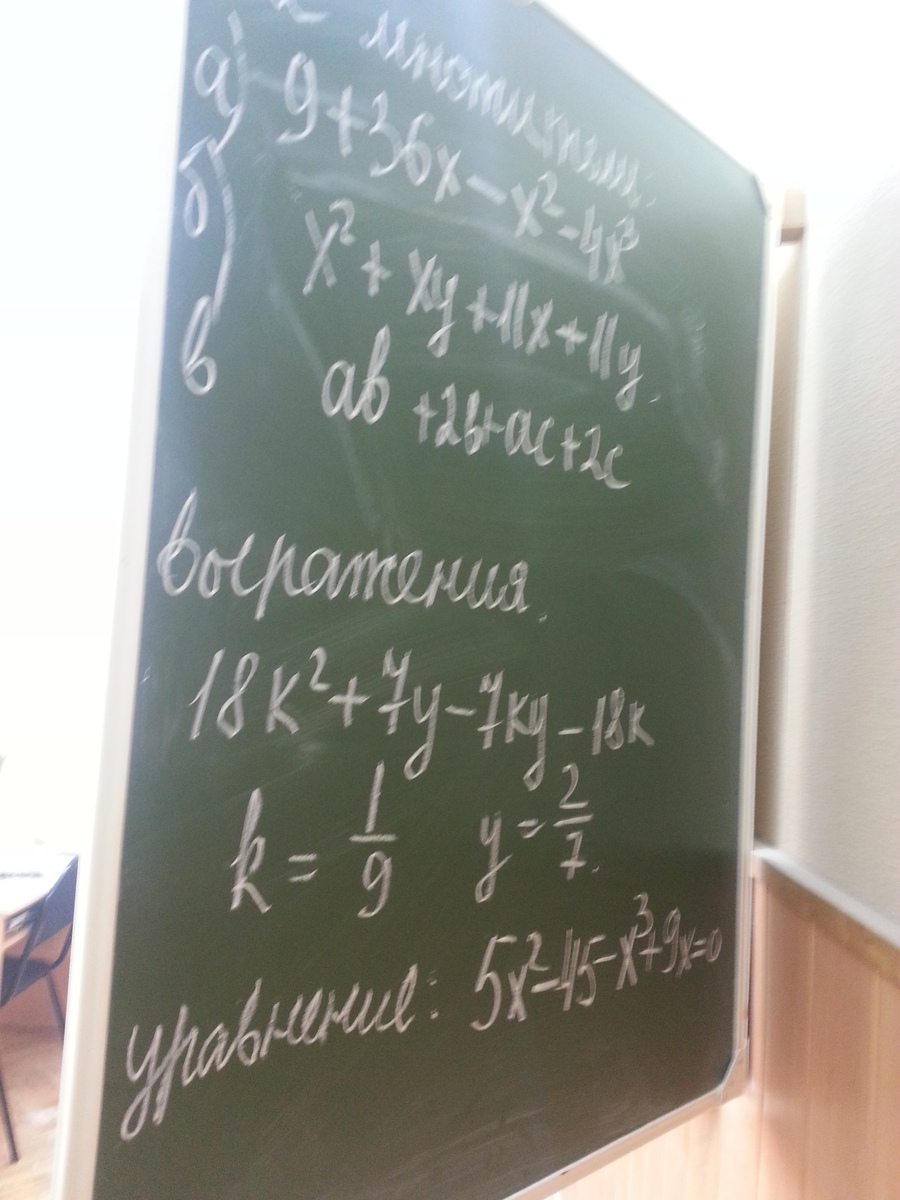 множители.
а) 9 + 36x - x² - 4x³
б) x² + xy + 11x + 11y.
в ab + 2b + ac + 2c
выражения.
18k² + 7y - 7ky - 18k
k = 1/9 y = 2/7.
уравнение: 5x² - 45 - x³ + 9x = 0